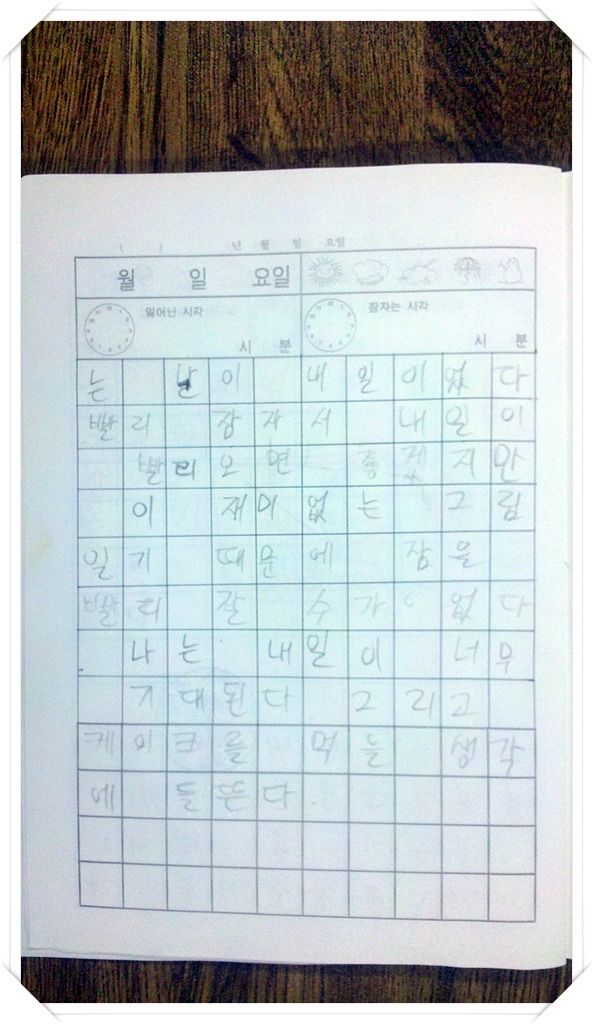 ( ) 년 월 일 요일
월 일 요일
일어난 시각 잠자는 시각
시 분 시 분
는 난이 내일이었다
빨리 잠자서 내일이
빨리오면 좋겠지만
이 재미없는 그림
일기 때문에 잠을
빨리 잘 수가 없다
나는 내일이 너무
기대된다 그리고
케이크를 먹늘 생각
에 들뜬다